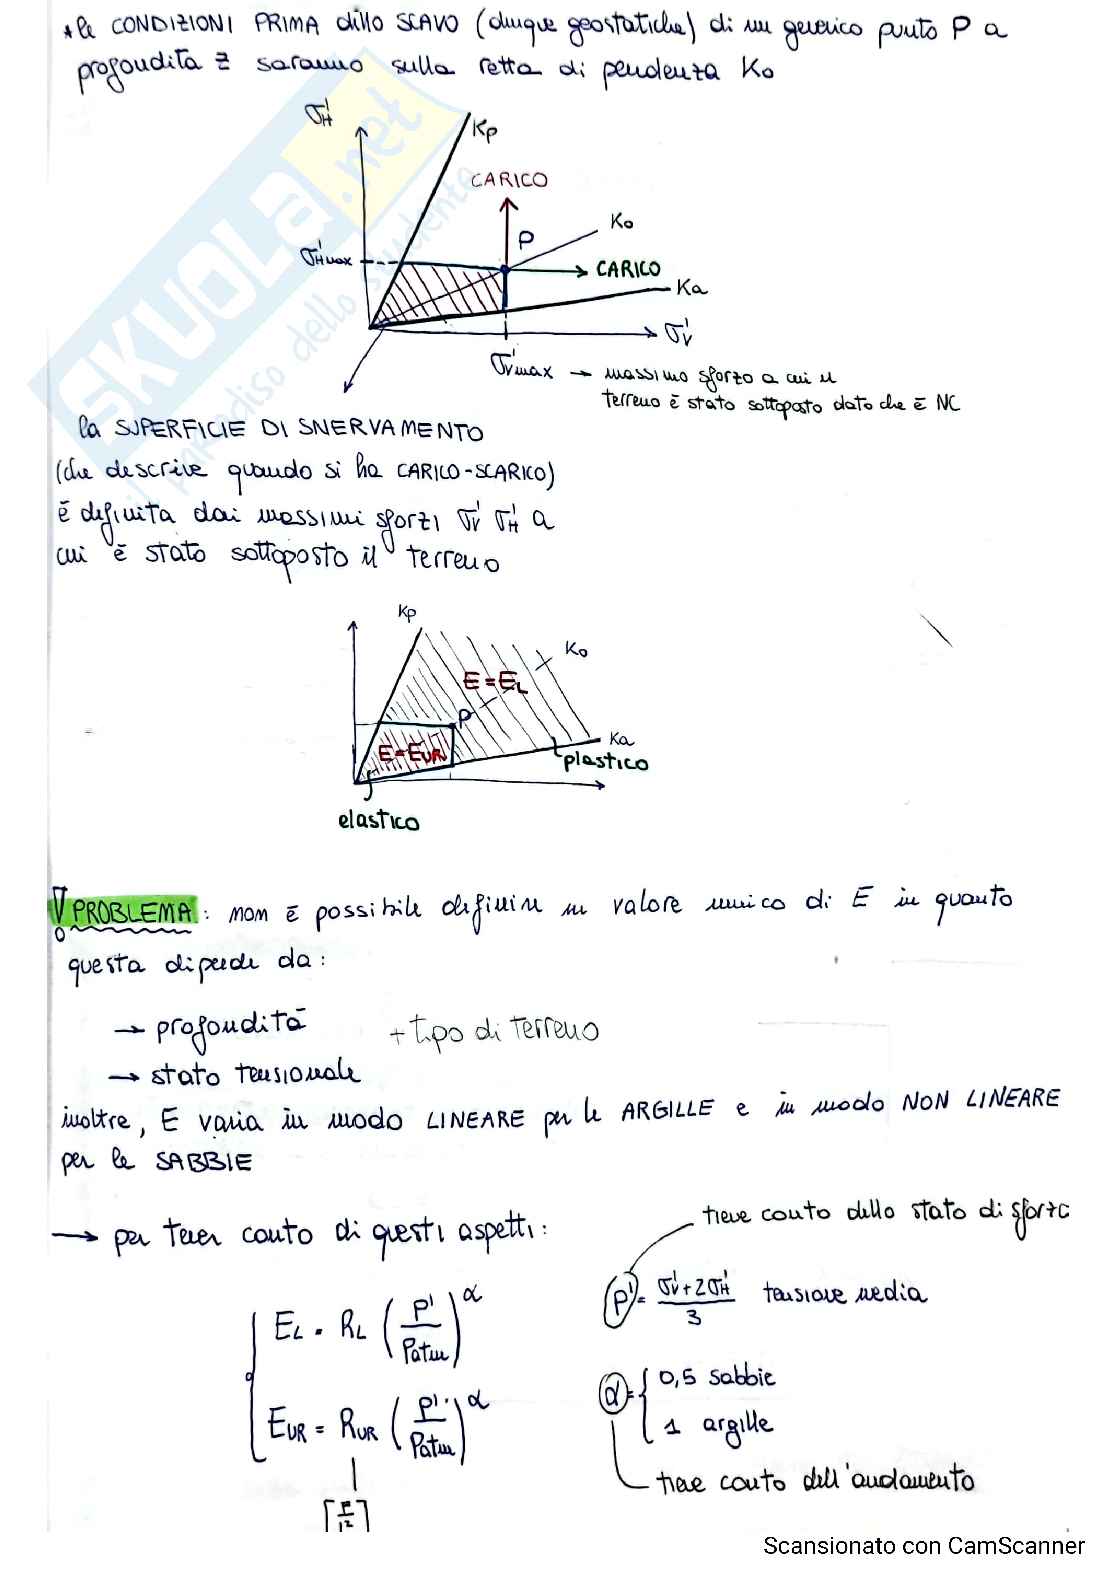 * le CONDIZIONI PRIMA dello SCAVO (dunque geostatiche) di un generico punto P a
profondità z saranno sulla retta di pendenza Ko
σ'H
Kp
CARICO
Ko
P
σ'Hmax
CARICO
Ka
σ'V
σ'Vmax → massimo sforzo a cui il
terreno è stato sottoposto dato che è NC
la SUPERFICIE DI SNERVAMENTO
(che descrive quando si ha CARICO-SCARICO)
è definita dai massimi sforzi σ'V σ'H a
cui è stato sottoposto il terreno
Kp
Ko
E = EL
P
E = EUR
Ka
plastico
elastico
! PROBLEMA: non è possibile definire un valore unico di E in quanto
questa dipende da:
→ profondità + tipo di terreno
→ stato tensionale
inoltre, E varia in modo LINEARE per le ARGILLE e in modo NON LINEARE
per le SABBIE
→ per tener conto di questi aspetti:
tiene conto dello stato di sforzo
EL = RL (P'/Patm)^α
P' = (σ'V + 2σ'H)/3 tensione media
EUR = RUR (P'/Patm)^α
α = { 0,5 sabbie
1 argille
tiene conto dell'andamento
[F/L²]
SKUOLA.net
il paradiso dello studente
Scansionato con CamScanner